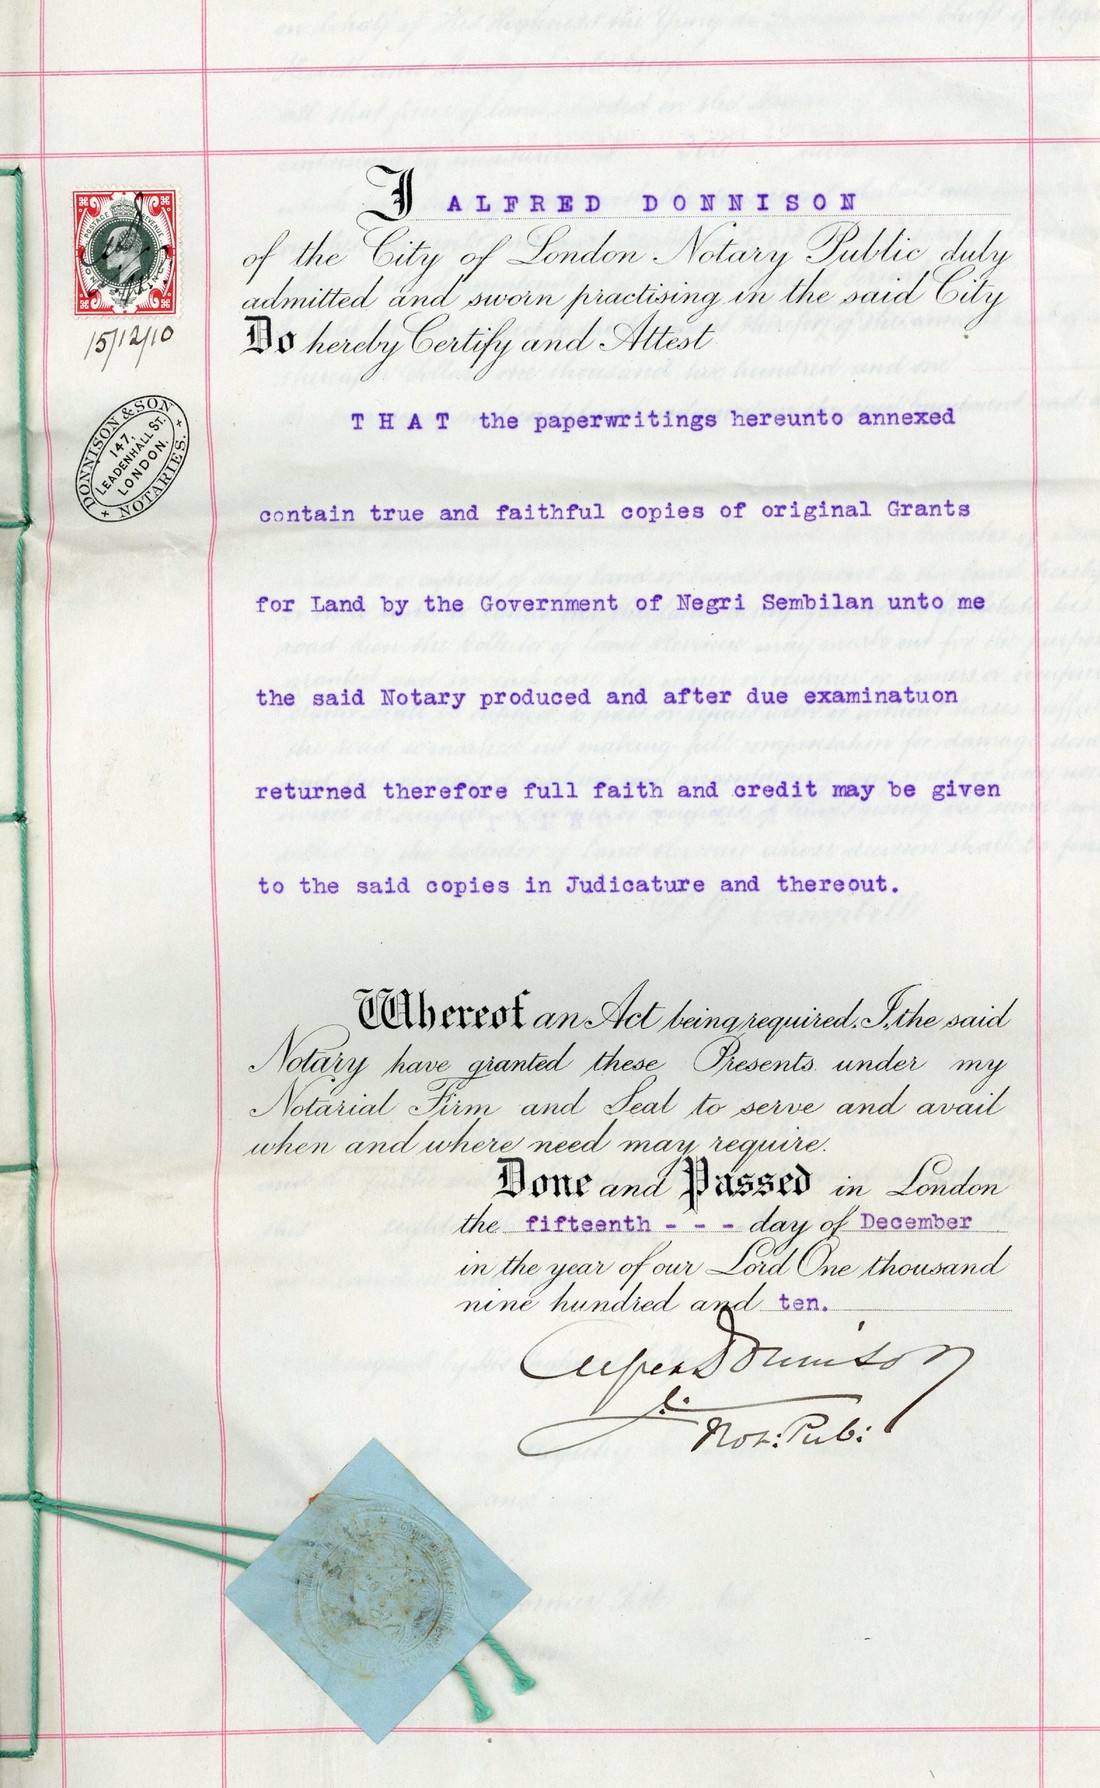 I ALFRED DONNISON
of the City of London Notary Public duly
admitted and sworn practising in the said City
Do hereby Certify and Attest
15/12/10
DONNISON & SON
147,
LEADENHALL ST.
LONDON.
NOTARIES.
THAT the paperwritings hereunto annexed
contain true and faithful copies of original Grants
for Land by the Government of Negri Sembilan unto me
the said Notary produced and after due examinatuon
returned therefore full faith and credit may be given
to the said copies in Judicature and thereout.
Whereof an Act being required, I, the said
Notary have granted these Presents under my
Notarial Firm and Seal to serve and avail
when and where need may require.
Done and Passed in London
the fifteenth - - - day of December
in the year of our Lord One thousand
nine hundred and ten.
Alfred Donnison
Not: Pub: